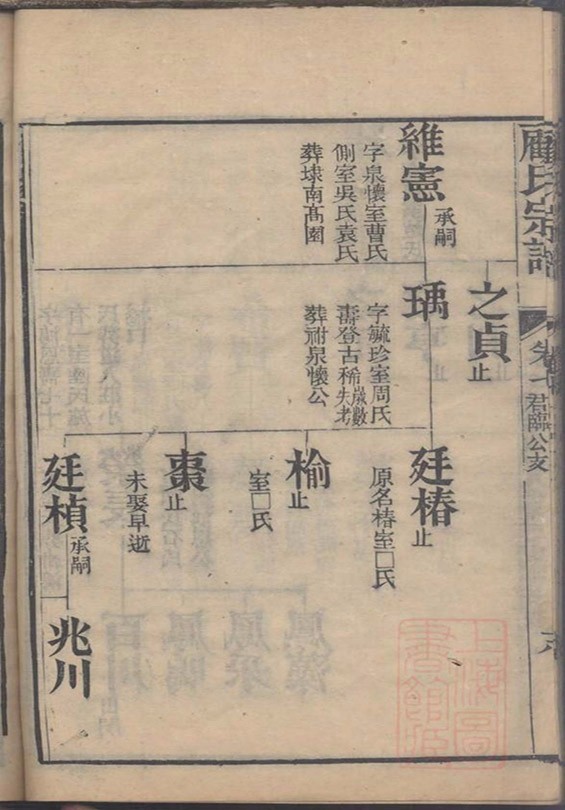 顧氏宗譜
卷一
君臨公支
之貞
止
維憲
承嗣
字泉懷室曹氏
側室吳氏袁氏
葬壊南高園
瑀
字毓珍室周氏
壽登古稀歲數失考
葬祔泉懷公
廷椿
止
原名椿室□氏
榆
止
室□氏
棗
止
未娶早逝
廷楨
承嗣
兆川
上海圖
書館臧